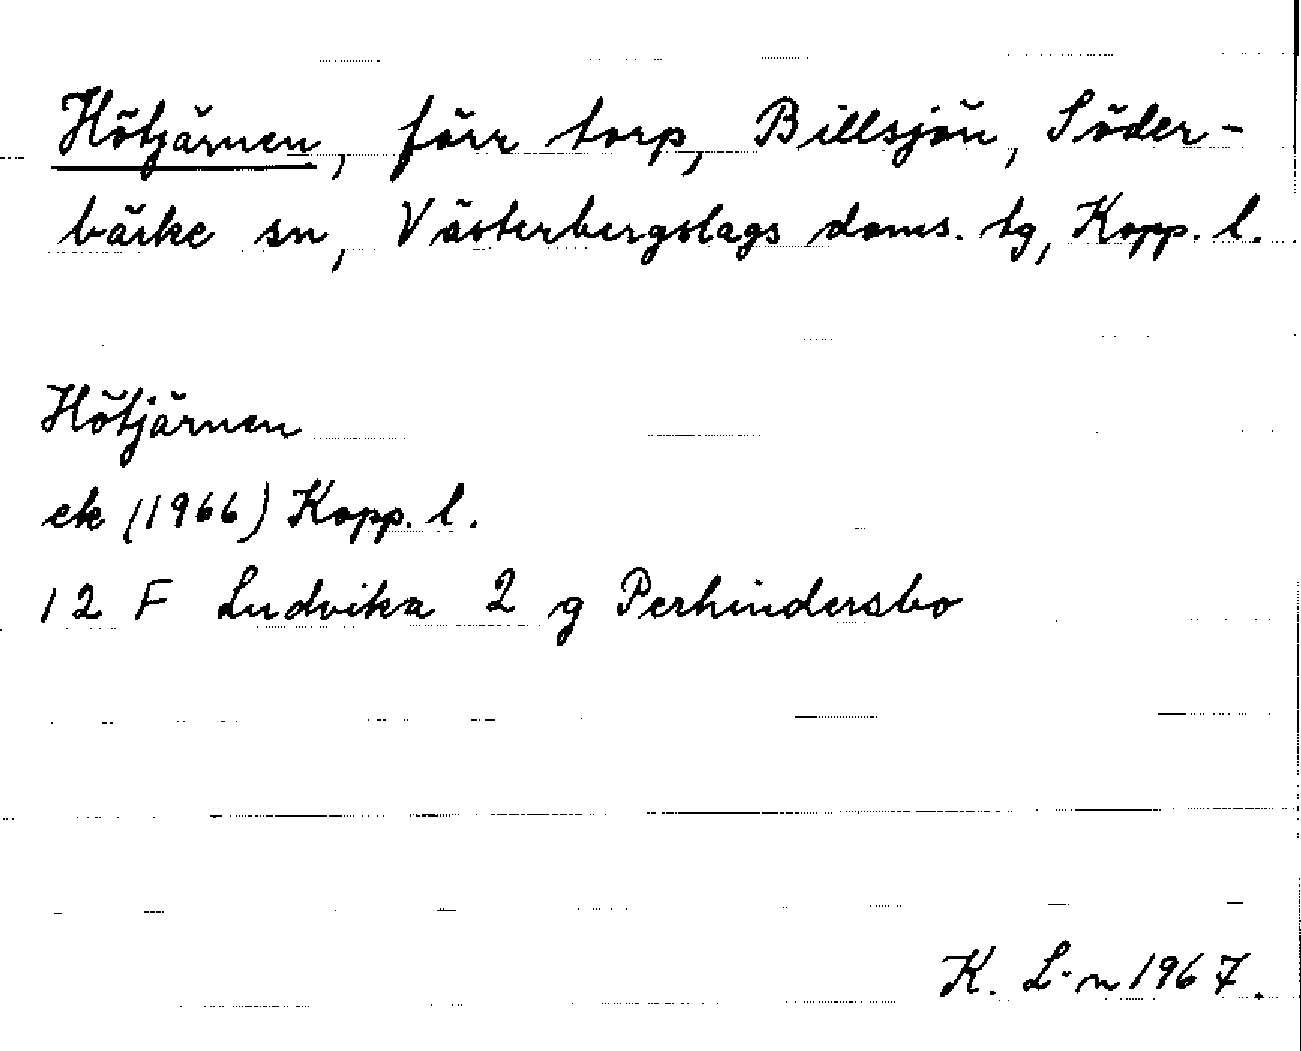 Hötjärnen, förr torp, Billsjön, Söder-
bärke sn, Västerbergslags doms. tg, Kopp. l.
Hötjärnen
ek (1966) Kopp. l.
12 F Ludvika 2 g Perhindersbo
K. L-n 1967.